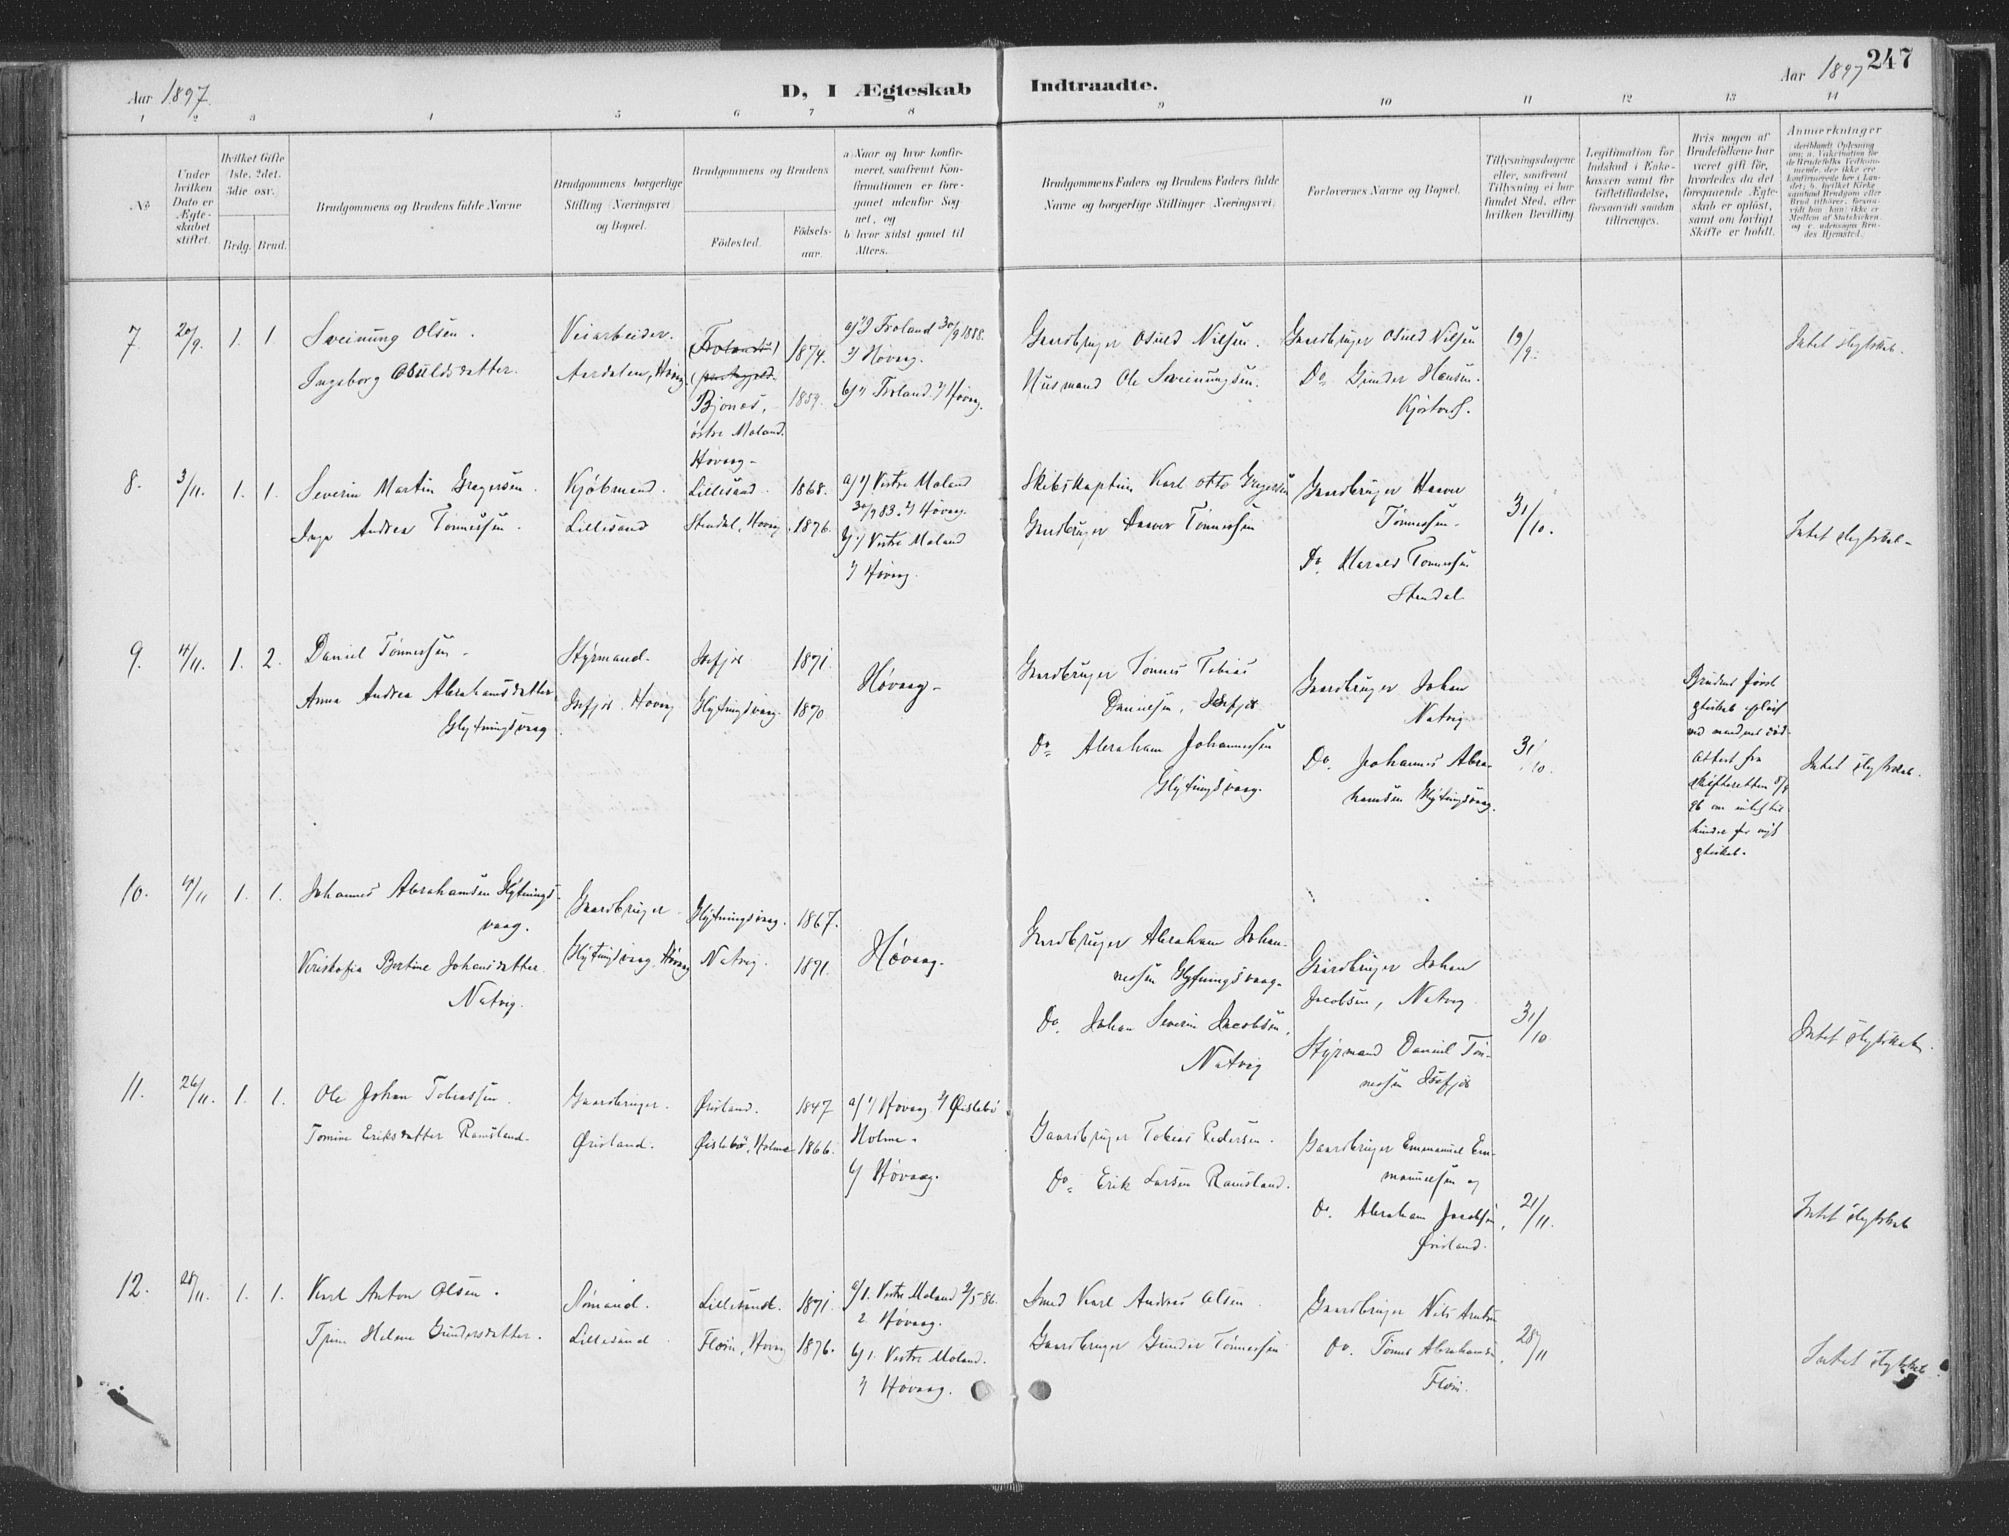 Aar 1897.
D, I Ægteskab Indtraadte.
Aar 1897 247
1 2 3 4 5 6 7 8 9 10 11 12 13 14
No.
Under hvilken Dato er Ægteskabet stiftet.
Hvilket Gifte 1ste. 2det. 3die osv.
Brdg. Brud.
Brudgommens og Brudens fulde Navne
Brudgommens borgerlige Stilling (Næringsvei) og Bopæl.
Brudgommens og Brudens
Fødested.
Fødselsaar.
a) Naar og hvor konfirmeret, saafremt Konfirmationen er foregaaet udenfor Sognet, og
b) hvor sidst gaaet til Alters.
Brudgommens Faders og Brudens Faders fulde Navne og borgerlige Stillinger (Næringsvei)
Forlovernes Navne og Bopæl.
Tillysningsdagene eller, saafremt Tillysning ei har fundet Sted, efter hvilken Bevilling
Legitimation for Indskud i Enkekassen samt for Giftefuldelse, forsaavidt saadan tiltrænges.
Hvis nogen af Brudefolkene har været gift før, hvorledes da det foregaaende Ægteskab er opløst, samt om lovligt Skifte er holdt.
Anmerkninger
7. 20/9. 1. 1
Sveinung Olsen.
Ingeborg Osuldsdatter.
Veiarbeider.
Aardalen, Høvaag
Froland
Bjones,
østre Moland.
Høvaag-
1874.
1859.
a) 1) Froland 30/9 1888.
2) Høvaag.
b) 1) Froland. 2) Høvaag.
Gaardbruger Osuld Nilsen.
Husmand Ole Sveinungsen.
Gaardbruger Osuld Nilsen
Do Gunder Hansen.
19/9.
Intet slegtskab.
8. 3/11. 1. 1.
Severin Martin Gregersen.
Inga Andrea Tønnessen.
Kjøbmand.
Lillesand
Lillesand.
Stendal, Høvaag
1868.
1876.
a) 1) Vestre Moland
30/9 83. 2) Høvaag.
b) 1) Vestre Moland
2) Høvaag.
Skibskaptein Karl Otto Gregersen
Gaardbruger Haaver Tønnessen
Gaardbruger Haaver
Tønnessen.
Do. Harald Tønnessen
Stendal
31/10.
Intet slegtskab-
9. 4/11. 1. 2.
Daniel Tønnessen.
Anna Andrea Abrahamsdatter
Glytningsvaag
Styrmand.
Isefjær. Høvaag
Isefjær
Glytningsvaag
1871.
1870
Høvaag-
Gaardbruger Tønnes Tobias
Danielsen, Isefjær
Do Abraham Johannessen
Glytningsvaag.
Gaardbruger Johan
Natvig
Do. Johannes Abrahamsen
Glytningsvaag.
31/10.
Brudens første
ved mandens død.
Attest fra
skifteretten 5/9
96 om intet til
hinder for nyt
Intet slegtskab.
10. 4/11 1. 1.
Johannes Abrahamsen Glytningsvaag.
Kristofia Bertine Johansdatter
Natvig.
Gaardbruger.
Glytningsvaag, Høvaag
Glytningsvaag.
Natvig.
1867.
1871.
Høvaag.
Gaardbruger Abraham Johannessen
Glytningsvaag
Do. Johan Severin Jacobsen,
Natvig
Gaardbruger Johan
Jacobsen, Natvig
Styrmand Daniel Tønnessen
Isefjær
31/10.
Intet slegtskab.
11. 26/11. 1. 1.
Ole Johan Tobiassen.
Tomine Eriksdatter Ramsland.
Gaardbruger.
Øvisland.
Øvisland.
Øislebø, Holme
1847
1866.
a) 1) Høvaag. 2) Øislebø
Holme.
b) Høvaag.
Gaardbruger Tobias Pedersen.
Do. Erik Larsen Ramsland.
Gaardbruger Emmanuel Emmanuelsen
og
Do. Abraham Jacobsen,
Øvisland.
21/11.
Intet slegtskab
12. 28/11. 1. 1.
Karl Anton Olsen.
Helene Gundersdatter.
Sømand.
Lillesand
Lillesand.
Flørin, Høvaag
1871.
1876.
a) 1. Vestre Moland 2/5 86.
2. Høvaag.
b) 1. Vestre Moland.
2) Høvaag.
Smed Karl Andreas Olsen
Gaardbruger Gunder Tønnessen
Gaardbruger Nils
Do. Tønnes Abrahamsen,
28/11
Intet slegtskab.